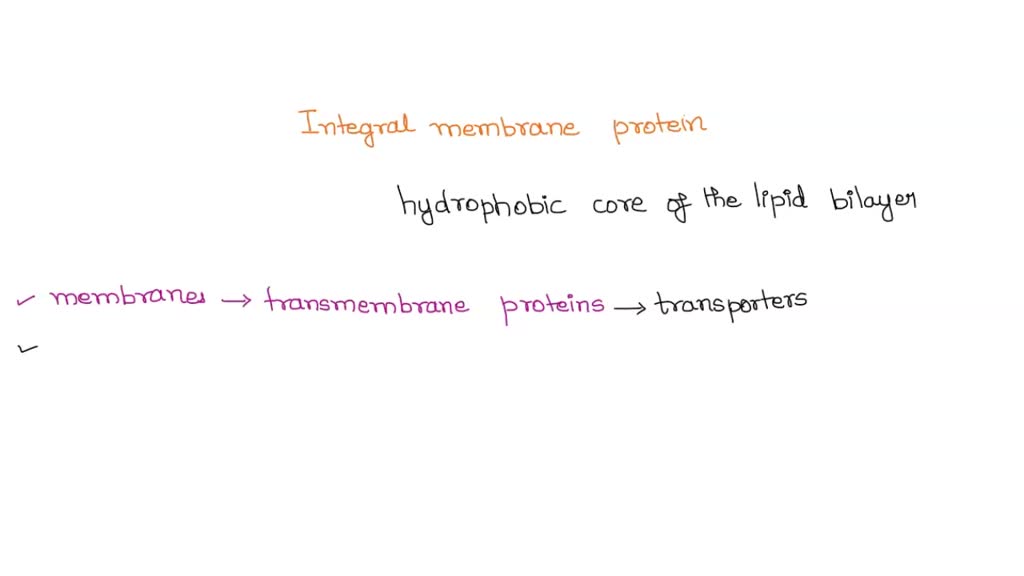 Integral membrane protein
hydrophobic core of the lipid bilayer
✓ membranes → transmembrane proteins → transporters
✓